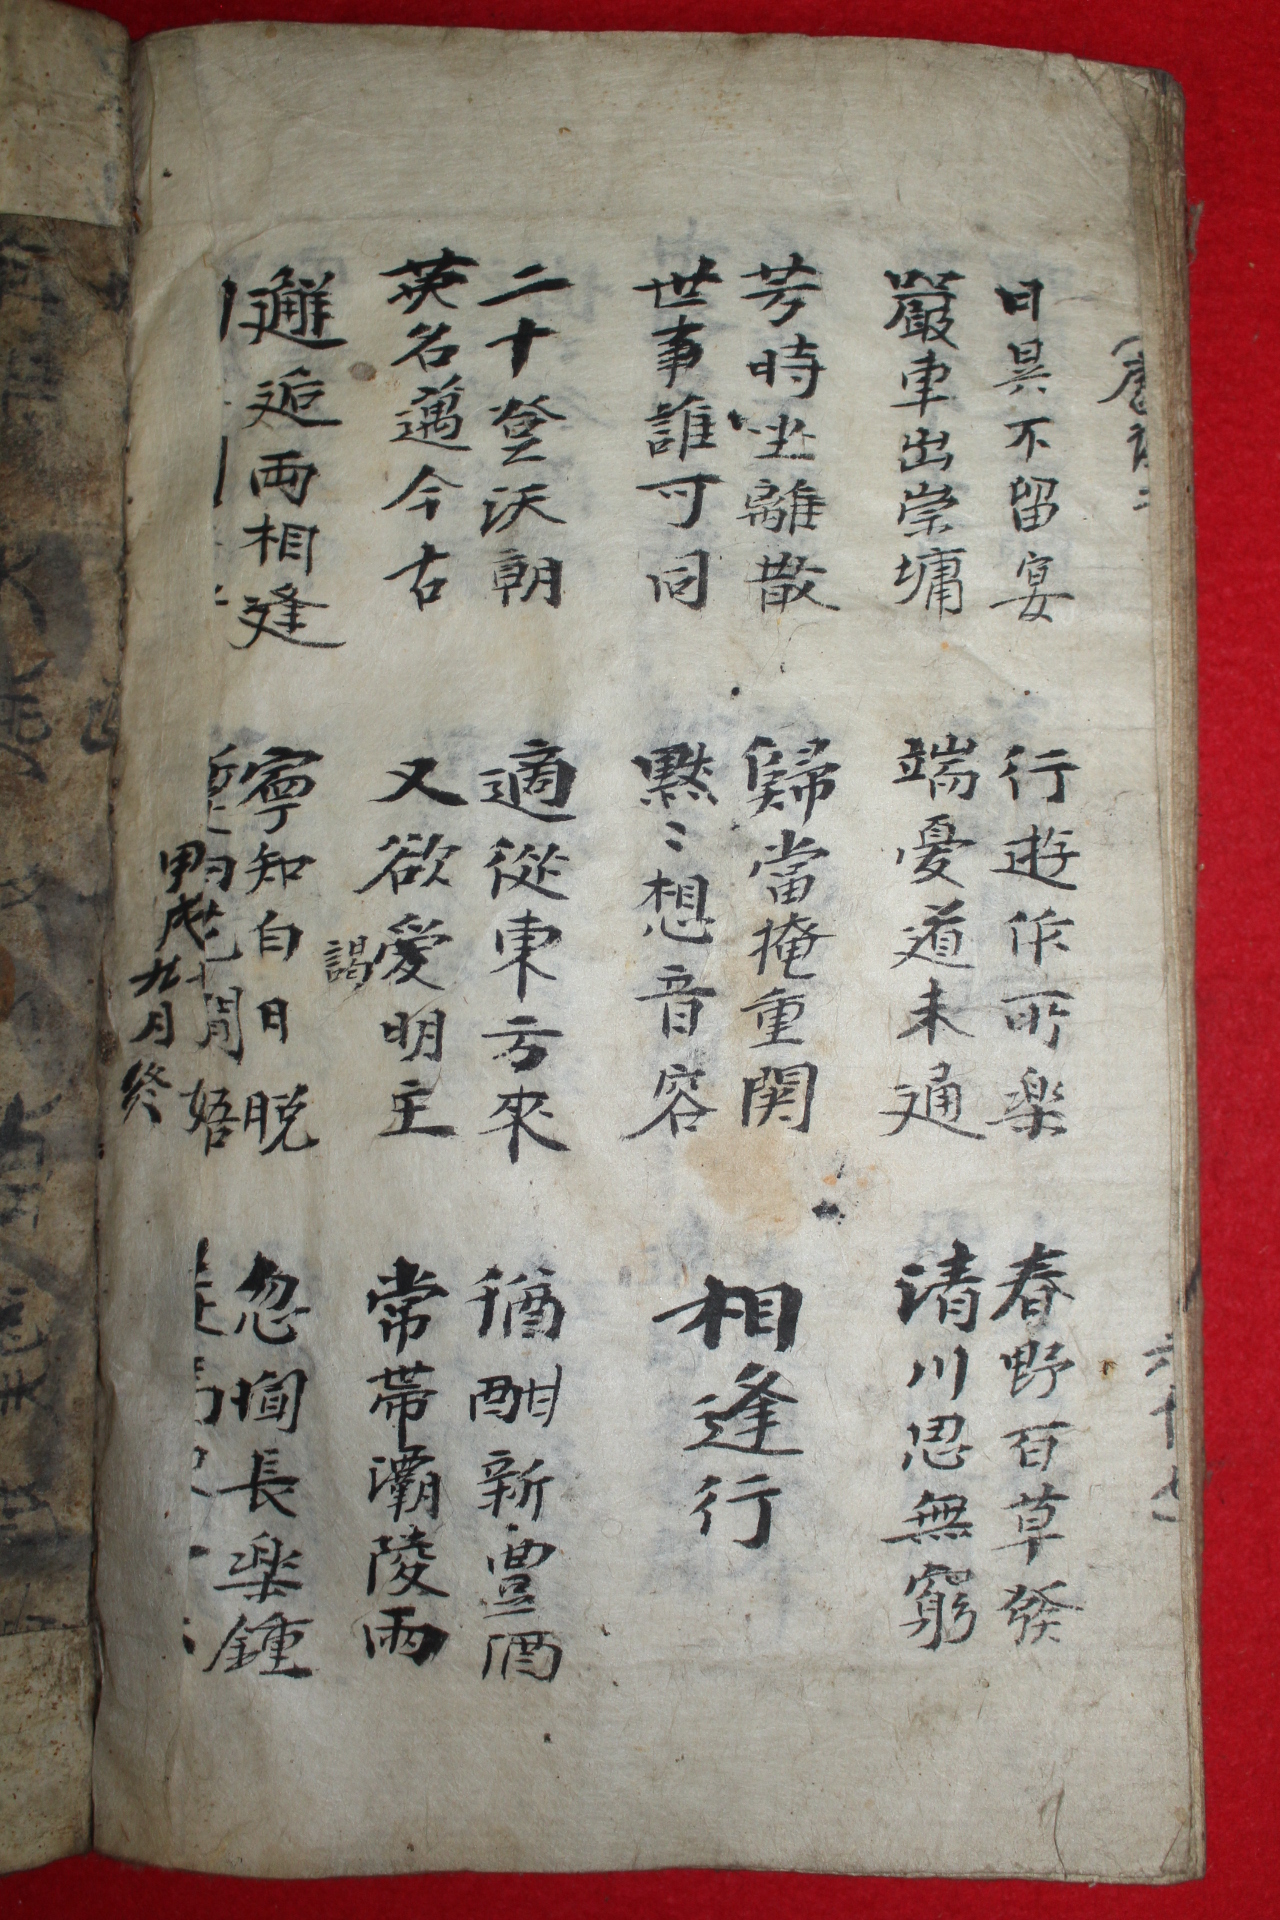 日昃不留宴 行遊作所樂 春野百草發
嚴車出崇墉 端憂道未通 清川思無窮
芳時坐離散 歸當掩重関
世事誰可同 默〻想音容 相逢行
二十登沃朝 適從東方來 猶酣新豊酒
英名邁今古 又欲愛明主 常帶灞陵雨
謁
邂逅両相逢 寧知白日脱 忽聞長楽鍾
甲戌九月終